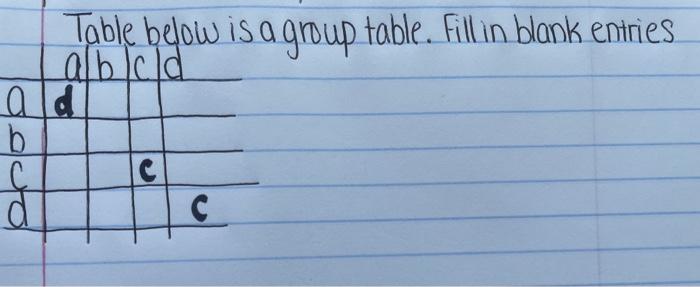 Table below is a group table. Fill in blank entries
a b c d
a d
b
c c
d c